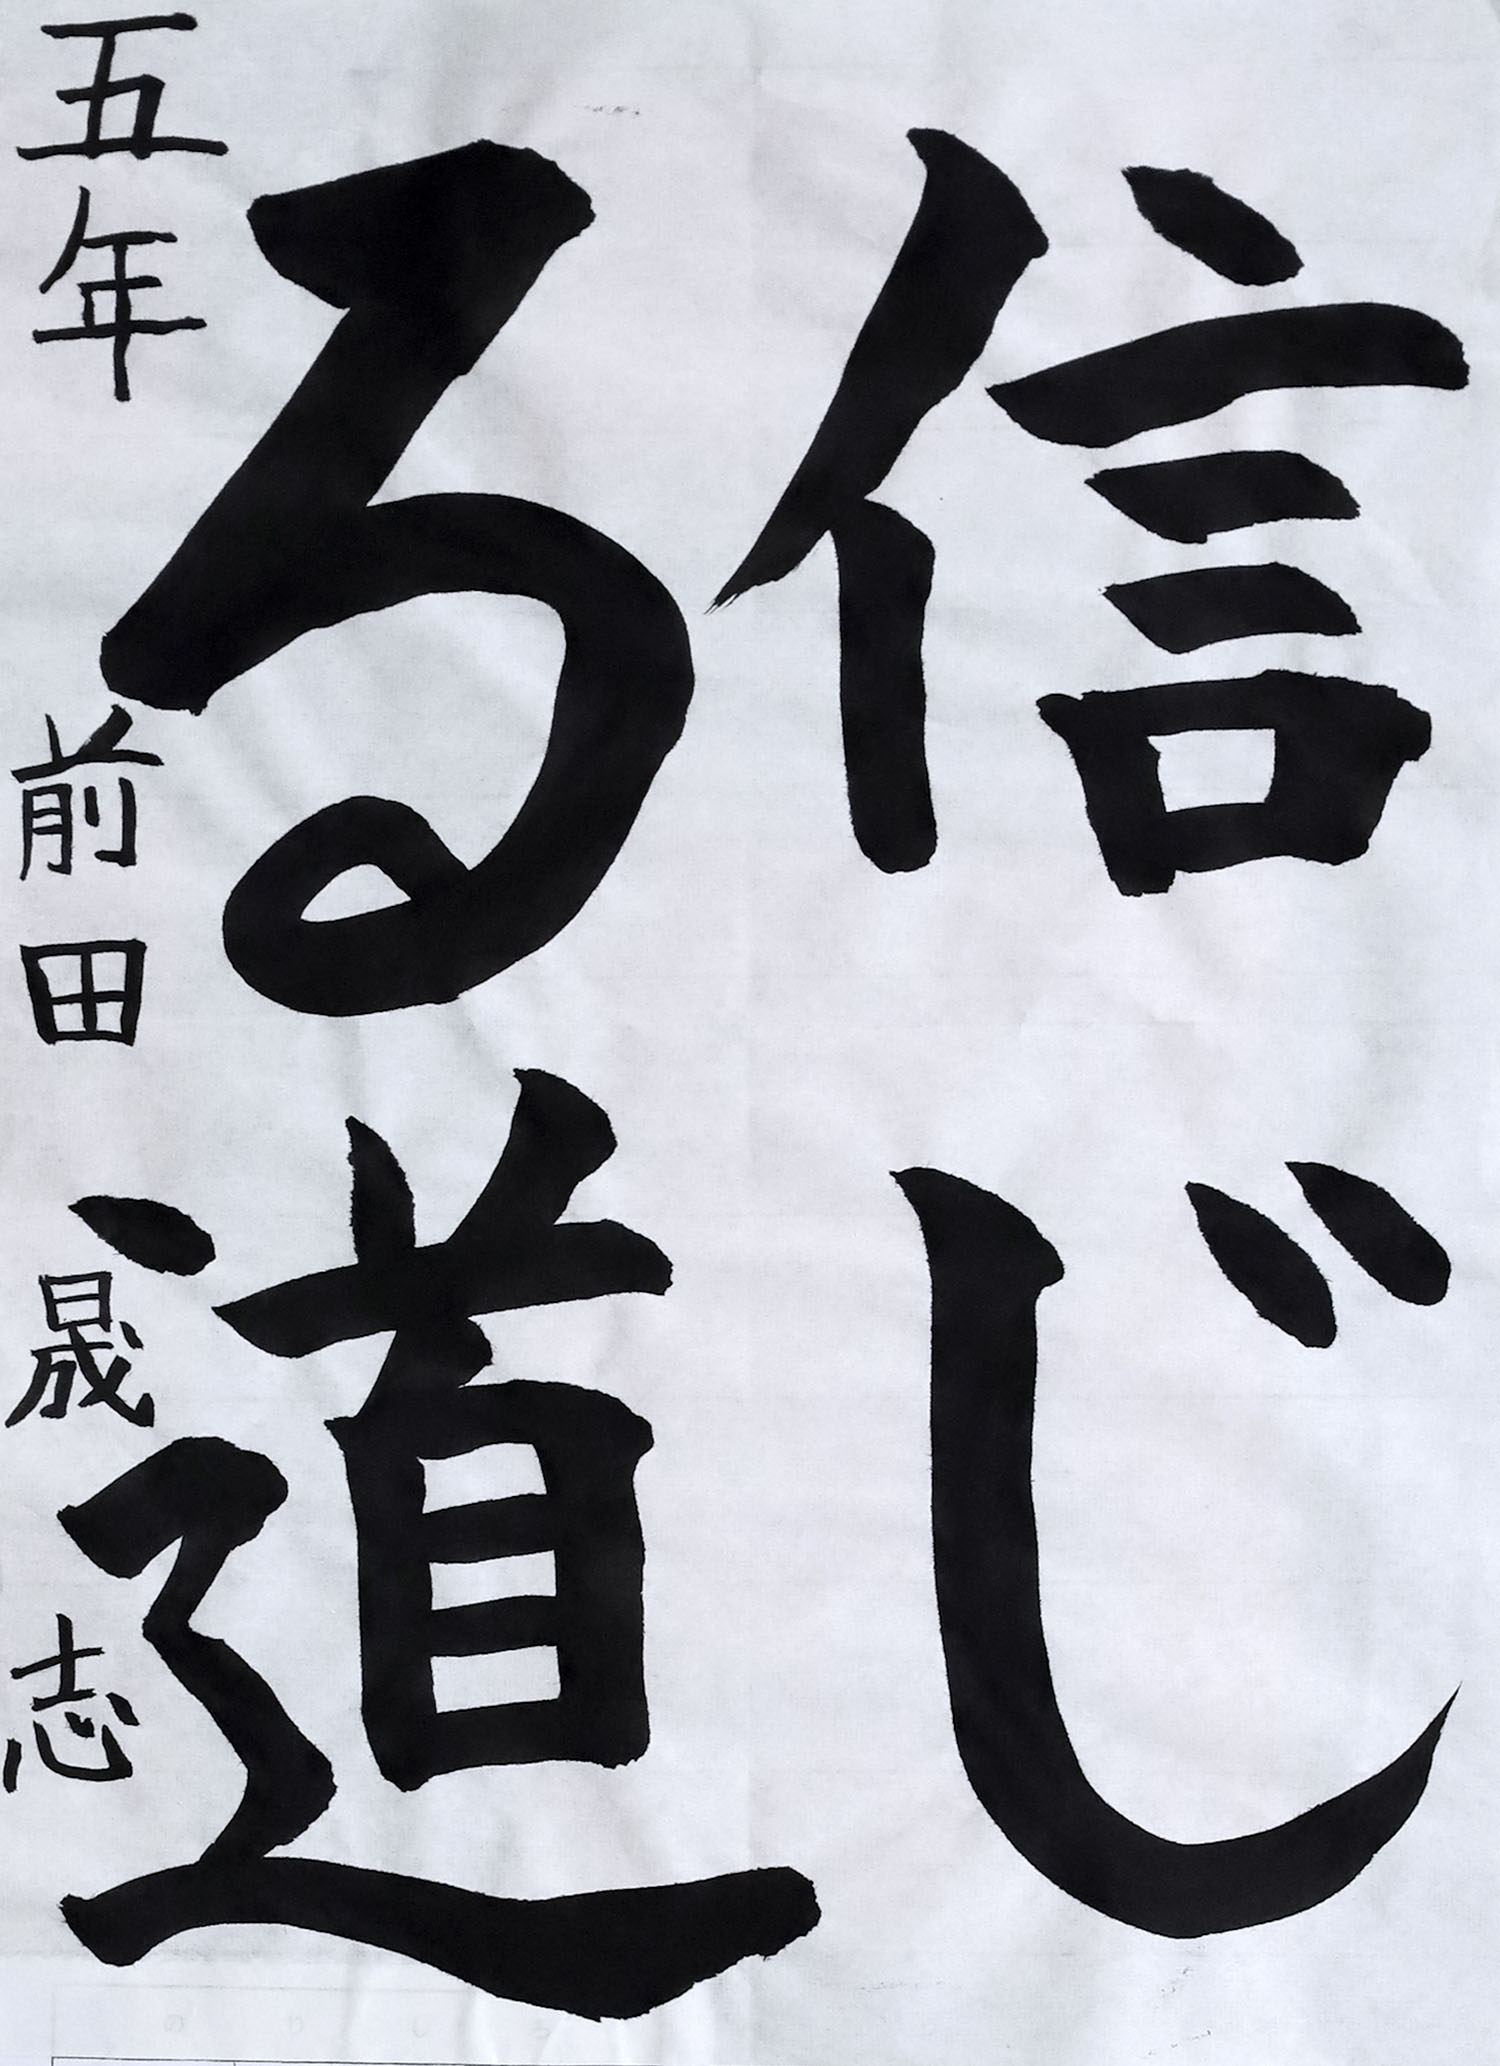 信じ
る道
五年 前田 晟志